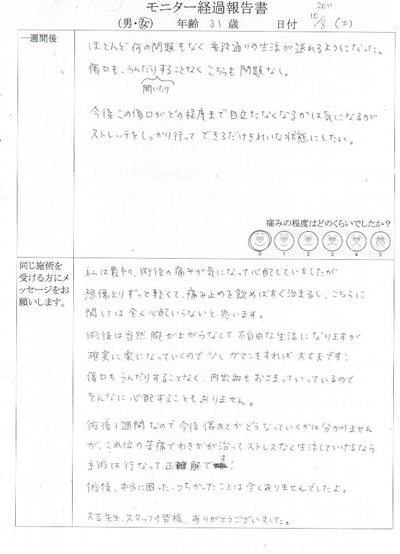 モニター経過報告書
(男・女) 年齢 31 歳 日付 2011 10/8 (土)
一週間後
ほとんど何の問題もなく普段通りの生活が送れるようになった。
傷口も、うんだりすることなくこちらも問題なし。
開いたり
今後この傷口がどの程度まで目立たなくなるかは気になるが
ストレッチをしっかり行ってできるだけきれいな状態にしたい。
痛みの程度はどのくらいでしたか?
0 1 2 3 4 5
同じ施術を
受ける方にメ
ッセージをお
願いします。
私は最初、術後の痛みが気になって心配していましたが
想像よりずっと軽くて、痛み止めを飲めばすぐ治まるし、こちらに
関しては全く心配いらないと思います。
術後は当然腕が上がらなくて不自由な生活になりますが
確実に楽になっていくので少しガマンをすれば大丈夫です!
傷口もうんだりすることなく、内出血もおさまっていっているので
そんなに心配することもありません。
術後1週間なので今後傷あとがどうなっていくかは分かけませんが
が、これ位の苦痛でわきがが治ってストレスなく生活していけるなら
手術は行なって正解です!
術後、本当に困った・つらかったことは全くありませんでしたよ。
先生、スタッフの皆様、ありがとうございました。